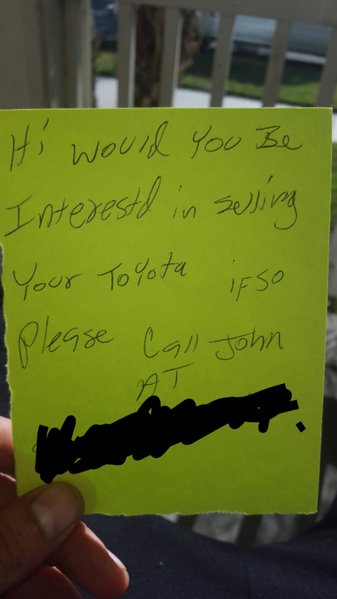 Hi would you Be
Interestd in selling
Your Toyota if so
Please Call John
AT